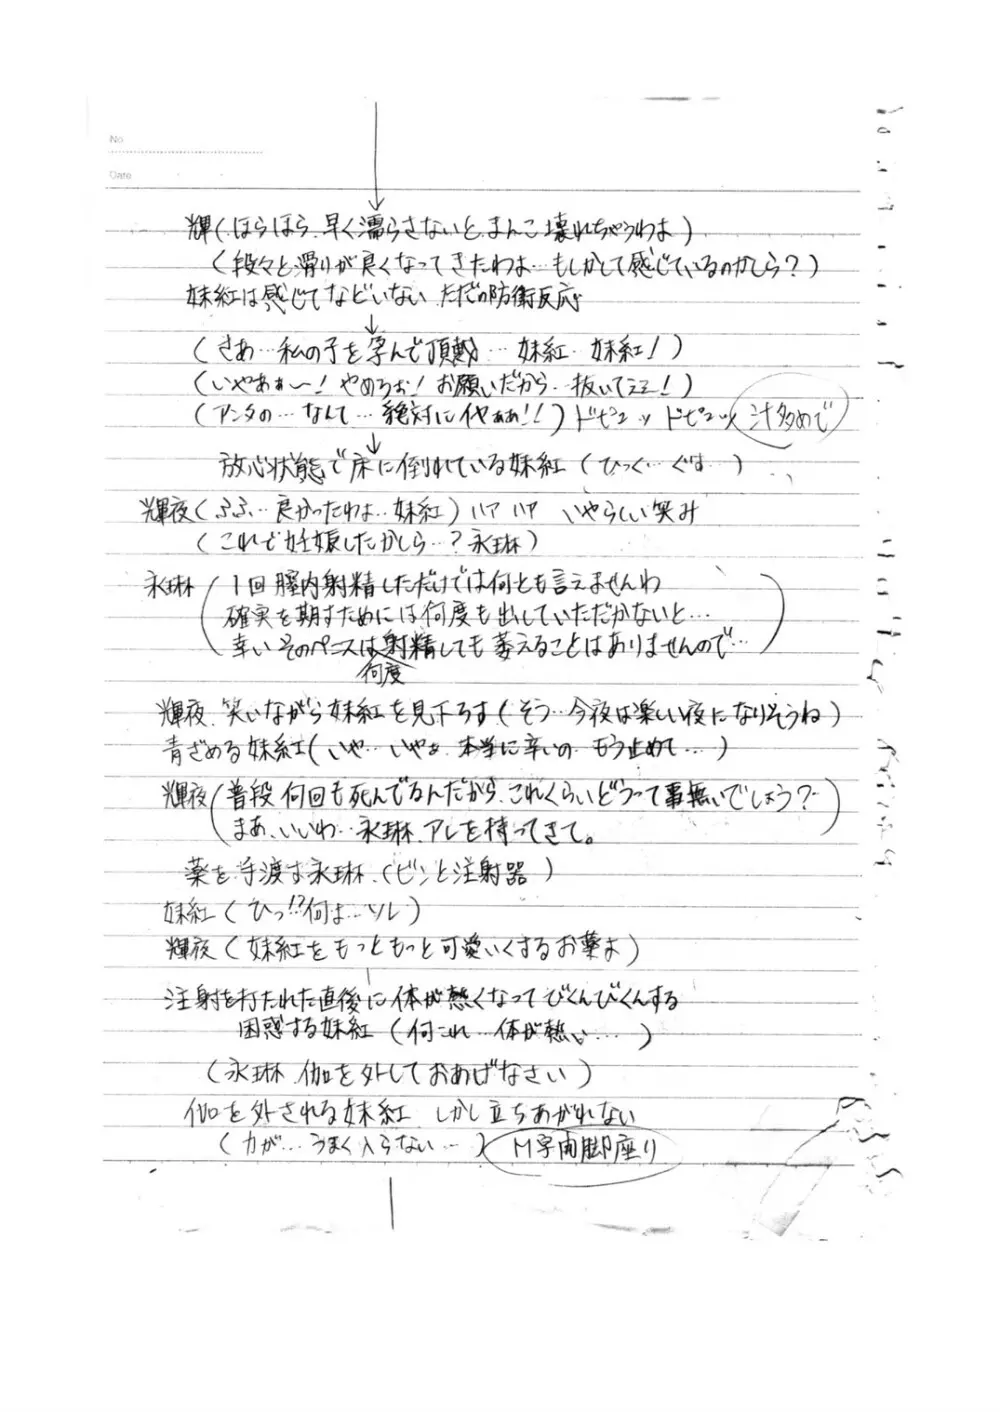 No
Date
輝(ほらほら、早く濡らさないと、まんこ壊れちゃうわよ)
(段々と滑りが良くなってきたわよ…もしかして感じているのかしら?)
妹紅は感じてなどいない ただの防衛反応
(さあ…私の子を孕んで頂戴…妹紅…妹紅!)
(いやあぁ~!やめろぉ!お願いだから…抜いてぇ!)
(アンタの…なんて…絶対にイヤぁぁ!!)ドピュッ ドピュッ 汁多めで
放心状態で床に倒れている妹紅(ひっく…ぐす…)
輝夜(ふふ…良かったわよ…妹紅)ハァ ハァ いやらしい笑み
(これで妊娠したかしら…?永琳)
永琳(1回膣内射精しただけでは何とも言えませんわ
確実を期すためには何度も出していただかないと…
幸いそのペニスは何度射精しても萎えることはありませんので…)
輝夜、笑いながら妹紅を見下ろす(そう…今夜は楽しい夜になりそうね)
青ざめる妹紅(いや…いやぁ…本当に辛いの…もう止めて…)
輝夜(普段何回も死んでるんだから、これくらいどうって事無いでしょう?
まあ、いいわ…永琳、アレを持ってきて。)
薬を手渡す永琳(ビンと注射器)
妹紅(ひっ!?何よ…ソレ)
輝夜(妹紅をもっともっと可愛いくするお薬よ)
注射を打たれた直後に体が熱くなってびくんびくんする
困惑する妹紅(何これ…体が熱い…)
(永琳、伽を外しておあげなさい)
伽を外される妹紅 しかし立ちあがれない
(力が…うまく入らない…) M字開脚座り